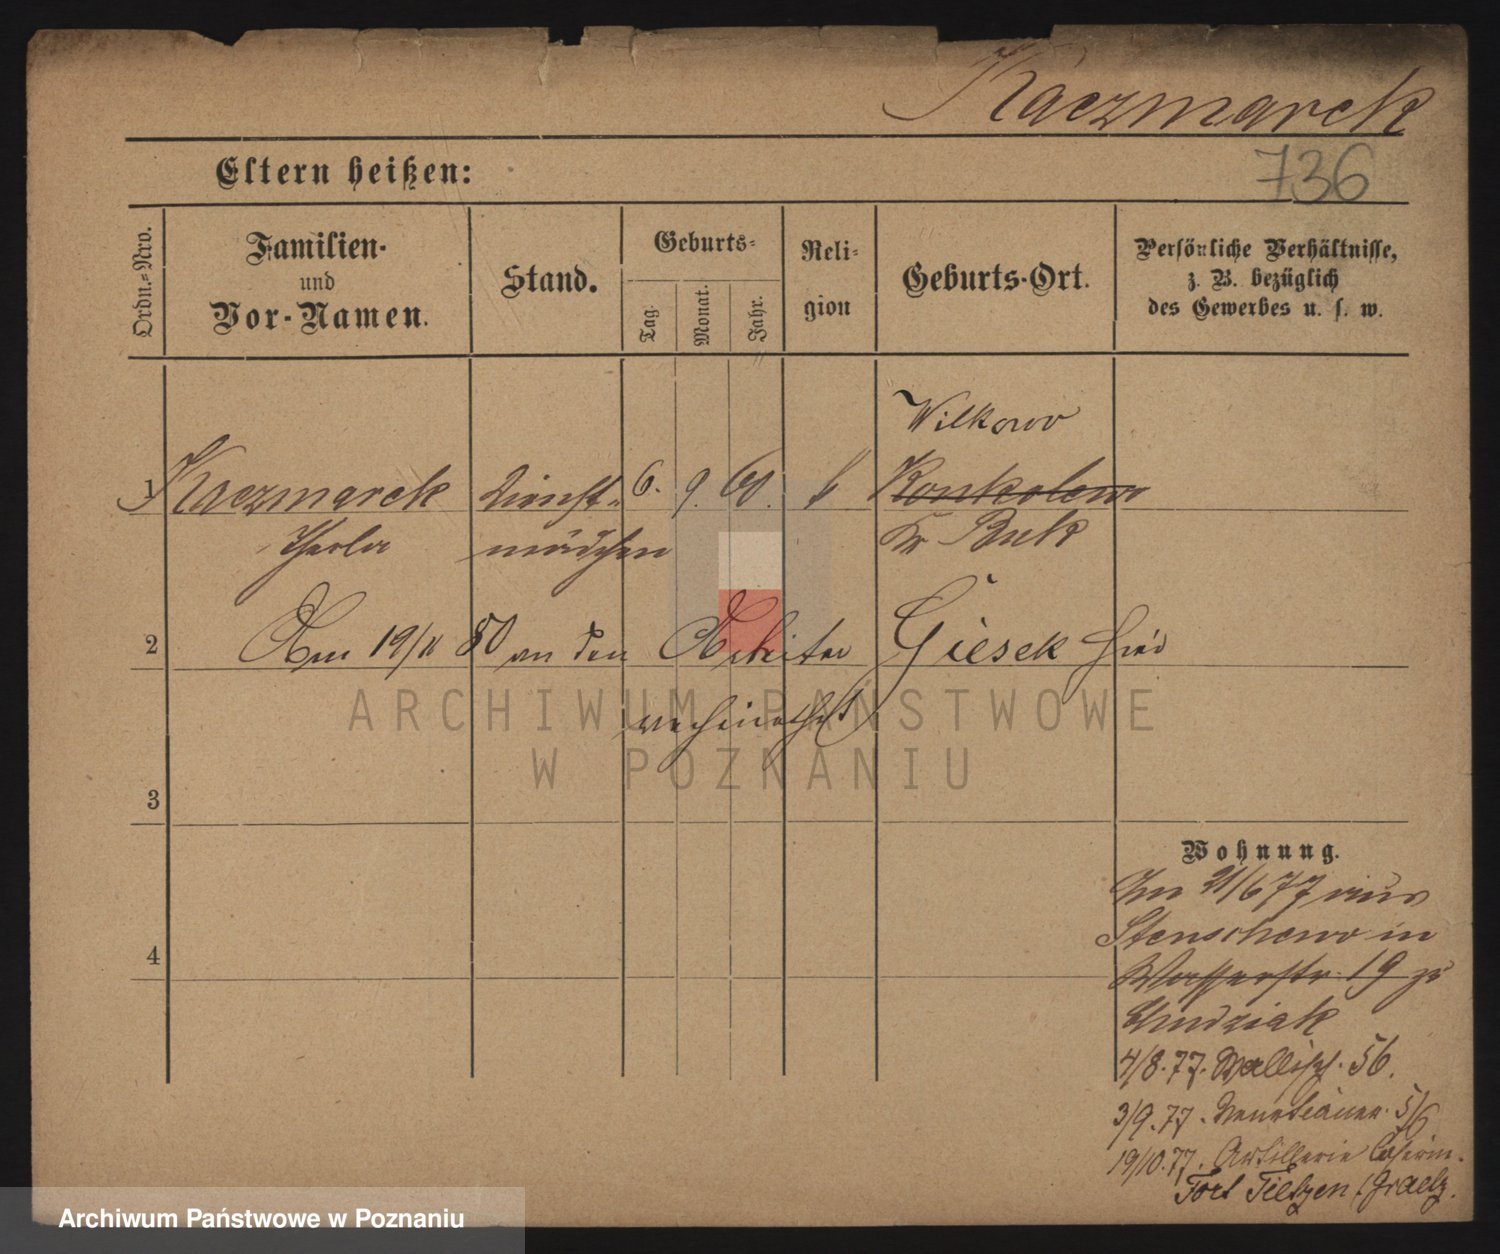 Kaczmarek
736
Eltern heißen:
Ordn.=Nro.
Familien-
und
Vor-Namen.
Stand.
Geburts=
Tag.
Monat.
Jahr.
Reli=
gion
Geburts-Ort.
Persönliche Verhältnisse,
z. B. bezüglich
des Gewerbes u. s. w.
Wilkowo
1 Kaczmarek Dienst= 6. 9. 60. k Konkolewo
Thecla mädchen Kr Buk
2 Am 19/11 80 an den Arbeiter Giesek hier
verheirathet
3
4
Wohnung.
Am 21/6 77 aus
Stenschewo in
Wasserstr. 19 zu
4/8. 77. Wallisch. 56.
3/9. 77. Venetianer. 5/6
19/10. 77. Artillerie Casern.
Fort Tietzen, Graetz.
ARCHIWUM PAŃSTWOWE
W POZNANIU
Archiwum Państwowe w Poznaniu